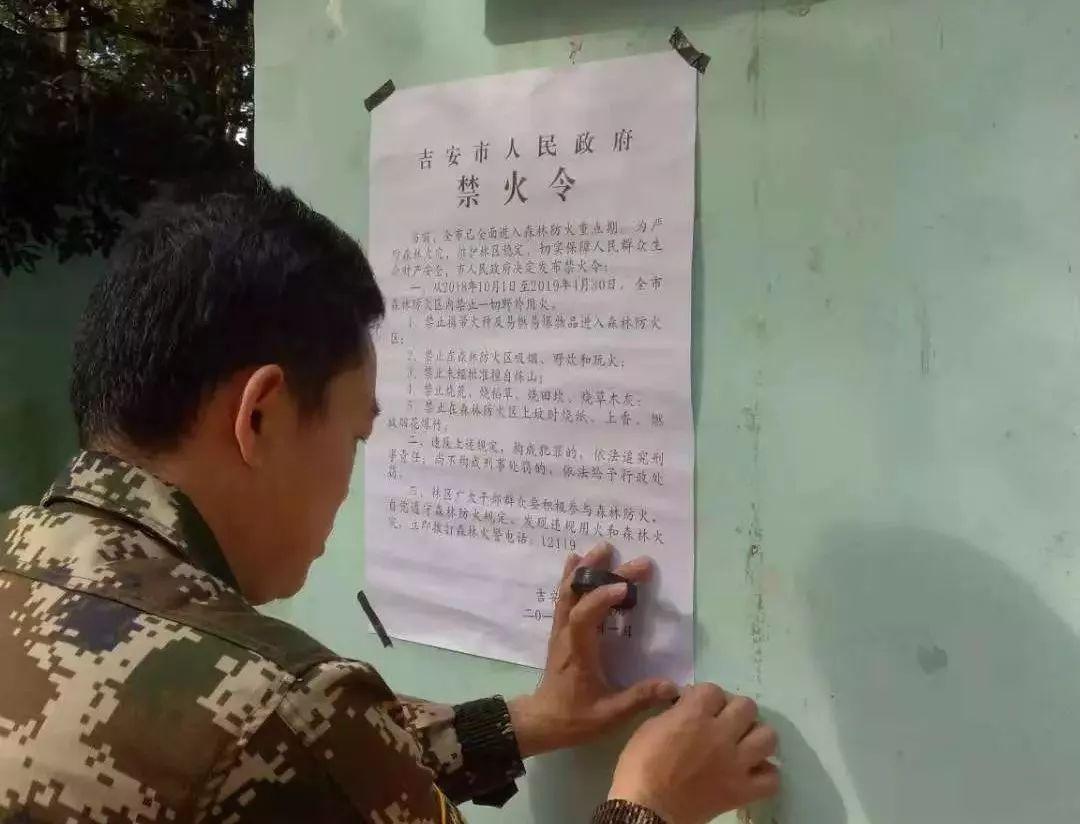 吉安市人民政府
禁火令
当前，全市已全面进入森林防火重点期。为严
防森林火灾，维护林区稳定，切实保障人民群众生
命财产安全，市人民政府决定发布禁火令：
一、从2018年10月1日至2019年4月30日，全市
森林防火区内禁止一切野外用火。
1、禁止携带火种及易燃易爆物品进入森林防火
区；
2、禁止在森林防火区吸烟、野炊和玩火；
3、禁止未经批准擅自炼山；
4、禁止烧荒、烧稻草、烧田坎、烧草木灰；
5、禁止在森林防火区上坟时烧纸、上香、燃
放烟花爆竹。
二、违反上述规定，构成犯罪的，依法追究刑
事责任；尚不构成刑事处罚的，依法给予行政处
罚。
三、林区广大干部群众要积极参与森林防火，
自觉遵守森林防火规定，发现违规用火和森林火
灾，立即拨打森林火警电话：12119
吉安
二0一 月一日